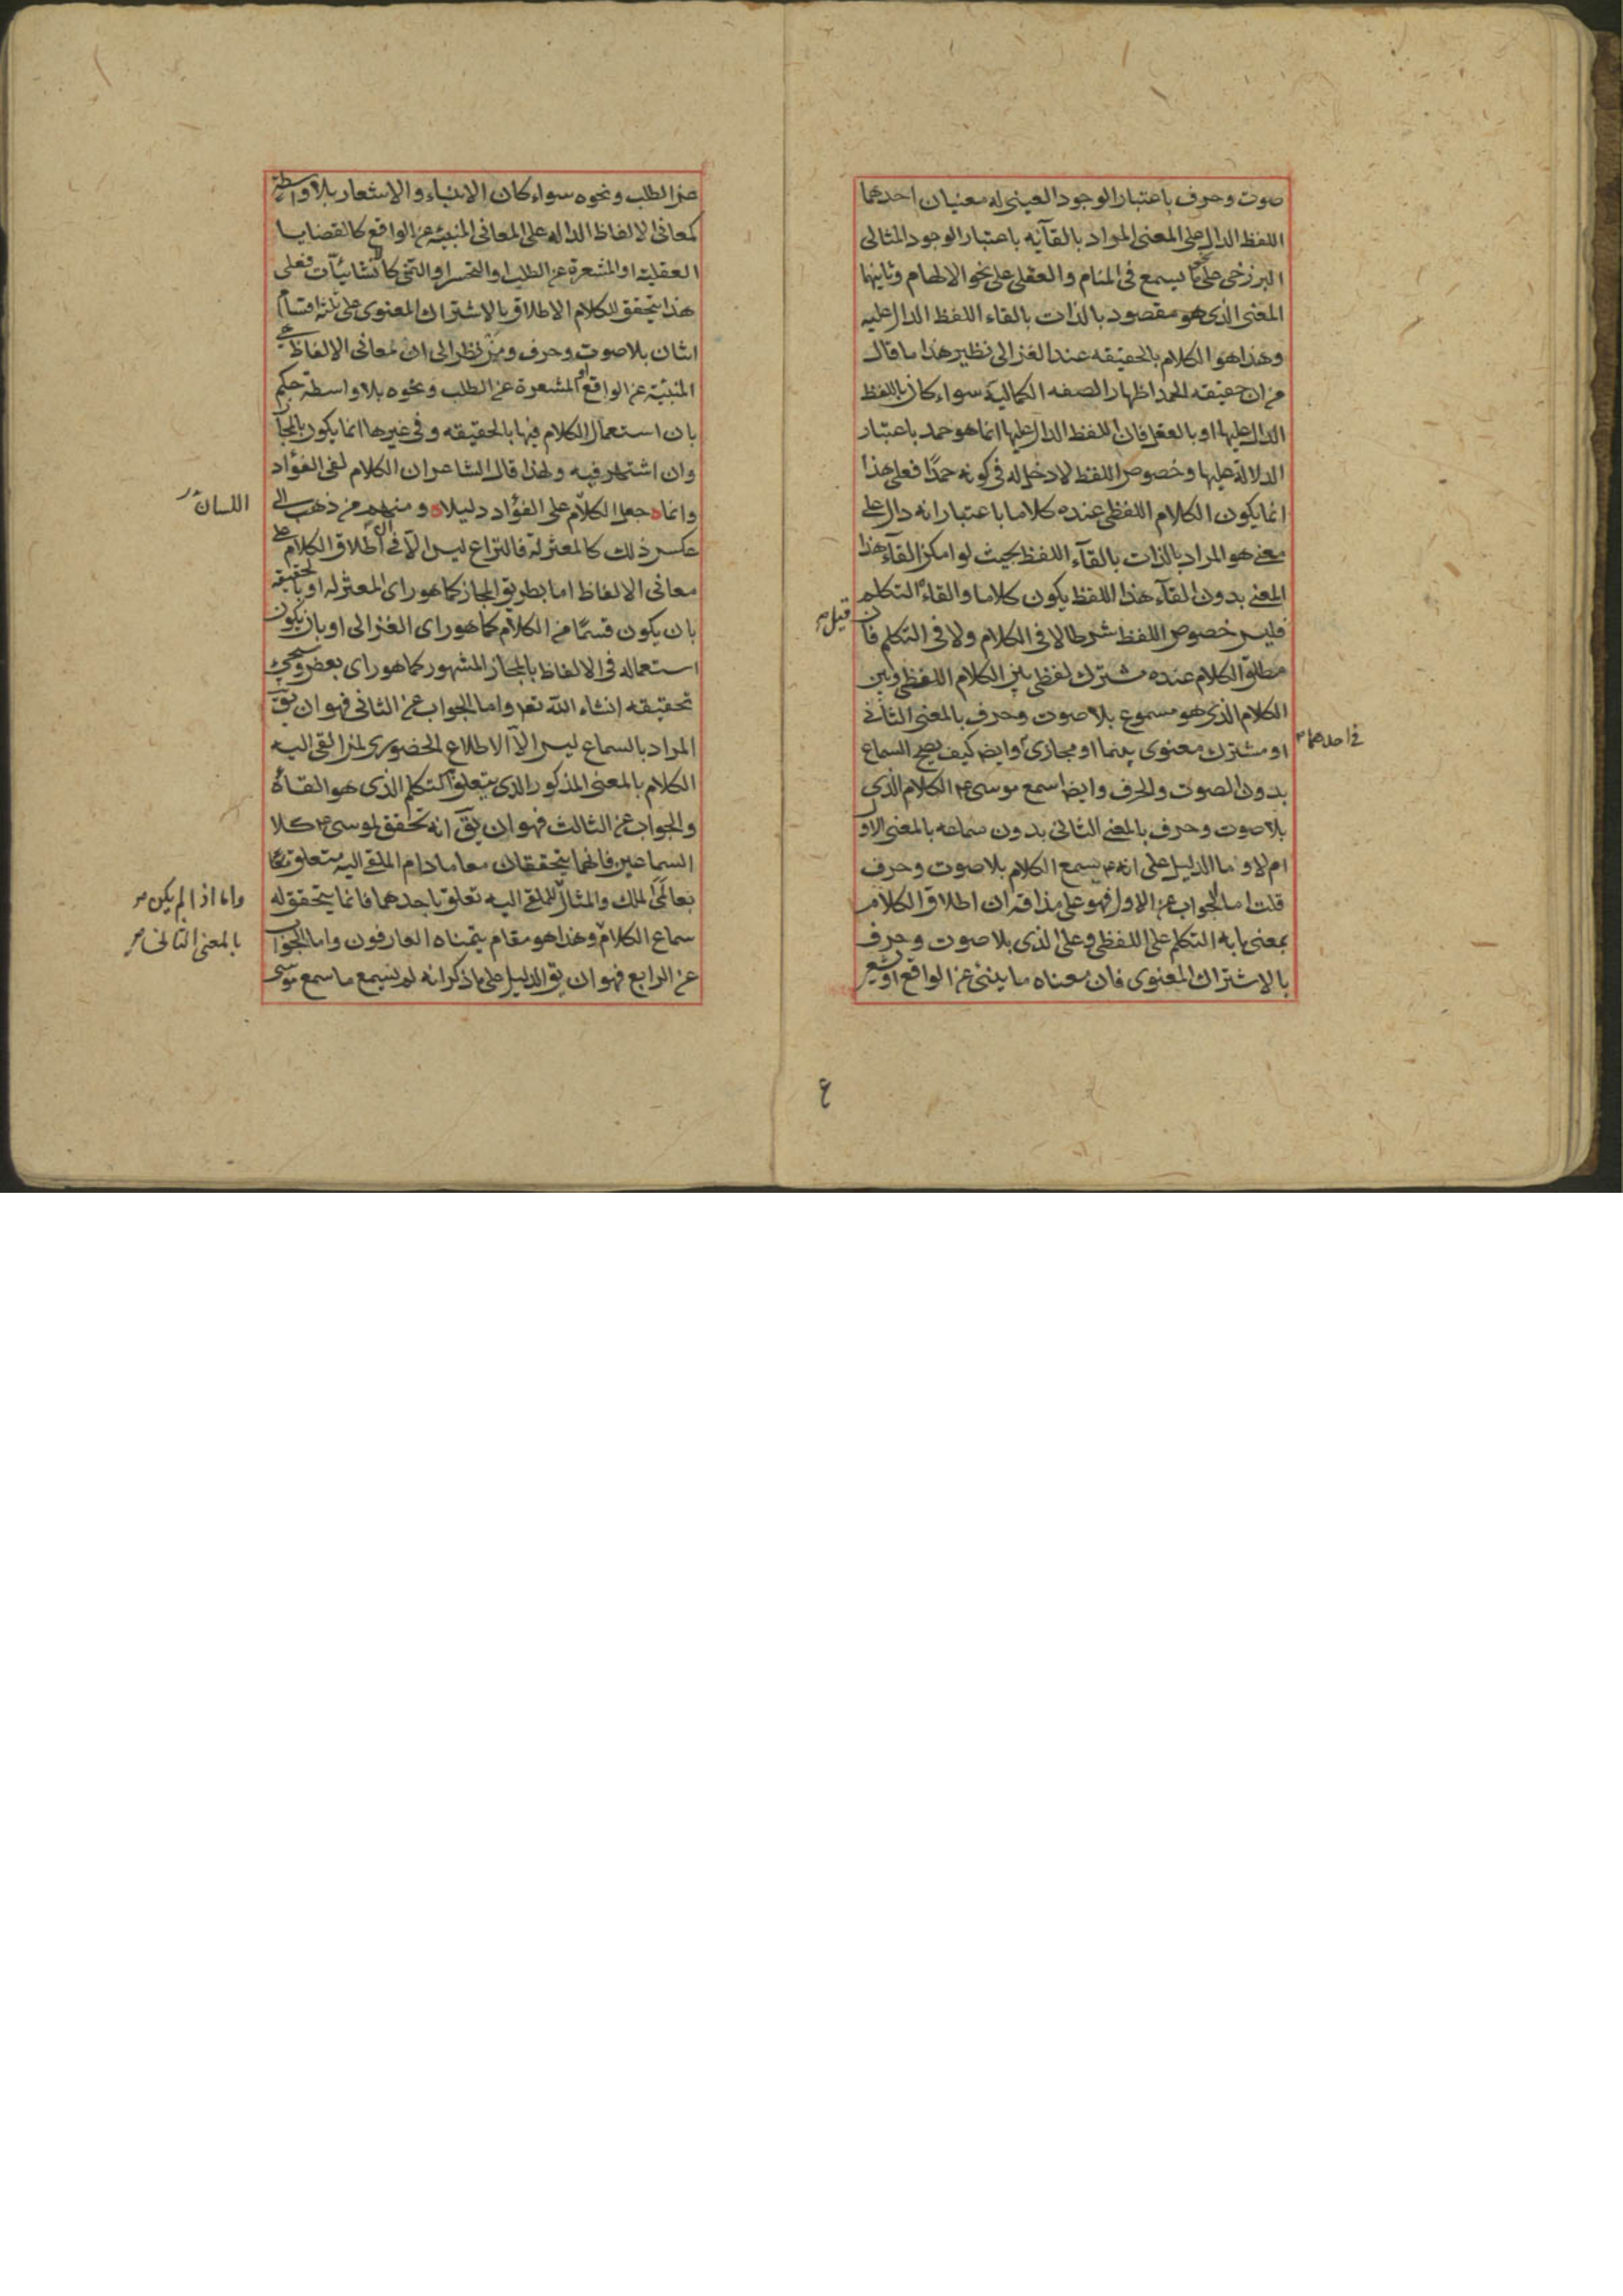 صوت وحرف باعتبار الوجود العينى له معنيان احدهما
اللفظ الدال على المعنى المراد بالقآئه باعتبار الوجود المثالى
البرزخى على ما يسمع فى المنام والعقلى على نحو الالهام وثانيهما
المعنى الذى هو مقصود بالذات بالقاء اللفظ الدال عليه
وهذا هو الكلام بالحقيقه عند الغزالى نظير هذا ما قال
من ان حقيقه الحمد اظهار الصفه الكماليه سواء كان باللفظ
الدال عليها او بالعقل فان اللفظ الدال عليها انما هو حمد باعتبار
الدلالة عليها وخصوص اللفظ لا دخل له فى كونه حمدًا فعلى هذا
انما يكون الكلام اللفظى عنده كلاما باعتبار انه دال على
معنى هو المراد بالذات بالقآء اللفظ بحيث لو امكن القآء هذا
المعنى بدون القآء هذا اللفظ يكون كلاما والقاءه التكلم
فليس خصوص اللفظ شرطا لا فى الكلام ولا فى التكلم فان
قيل
مطلق الكلام عنده مشترك لفظى بين الكلام اللفظى وبين
الكلام الذى هو مسموع بلا صوت وحرف بالمعنى الثانى
او مشترك معنوى بينهما او مجازى وايضا كيف يصح السماع
فى احدهما
بدون الصوت والحرف وايضا سمع موسى ع الكلام الذى
بلا صوت وحرف بالمعنى الثانى بدون سماعه بالمعنى الاول
ام لا وما الدليل على انه ع يسمع الكلام بلا صوت وحرف
قلت اما الجواب عن الاول فهو على مذاقه ان اطلاق الكلام
بمعنى ما به التكلم على اللفظى وعلى الذى بلا صوت وحرف
بالاشتراك المعنوى فان معناه ما ينبئ عن الواقع او يشعر
٤
عن الطلب ونحوه سواء كان الانباء والاشعار بلا واسطة
كمعانى الالفاظ الداله على المعانى المنبئه عن الواقع كالقضايا
العقليه او المشعرة عن الطلب او التحسر او التمنى كالانشائيآت فعلى
هذا يتحقق للكلام الاطلاق بالاشتراك المعنوى على ثلثة اقسام
اثنان بلا صوت وحرف ومن نظر الى ان معانى الالفاظ هى
المنبئة عن الواقع او المشعرة عن الطلب ونحوه بلا واسطة حكم
بان استعمال الكلام فيها بالحقيقه وفى غيرها انما يكون بالمجاز
وان اشتهر فيه ولهذا قال الشاعر ان الكلام لفى الفؤاد
وانما جعل الكلام على الفؤاد دليلا ومنهم من ذهب الى
اللسان
عكس ذلك كالمعتزلة فالنزاع ليس الّا فى ان اطلاق الكلام على
معانى الالفاظ اما بطريق المجاز كما هو راى المعتزله او بالحقيقه
بان يكون قسمًا من الكلام كما هو راى الغزالى او بان يكون
استعماله فى الالفاظ بالمجاز المشهور كما هو راى بعض وسيجئ
تحقيقه انشاء الله تعه واما الجواب عن الثانى فهو ان يقَ
المراد بالسماع ليس الّا الاطلاع الحضورى لمن القى اليه
الكلام بالمعنى المذكور الذى يتعلق التكلم الذى هو القاؤه
والجواب عن الثالث فهو ان يقَ انه تحقق لموسى ع كلا
السماعين فانهما يتحققان معا ما دام الملقى اليه متعلق
بعالمَى الملك والمثال للملقى اليه تعلق باحدهما فانما يتحقق له
واما اذا لم يكن
سماع الكلام وهذا هو مقام يتمناه العارفون واما الجواب
بالمعنى الثانى
عن الرابع فهو ان يق الدليل على ما ذكر انه لم يسمع ما سمع موسى